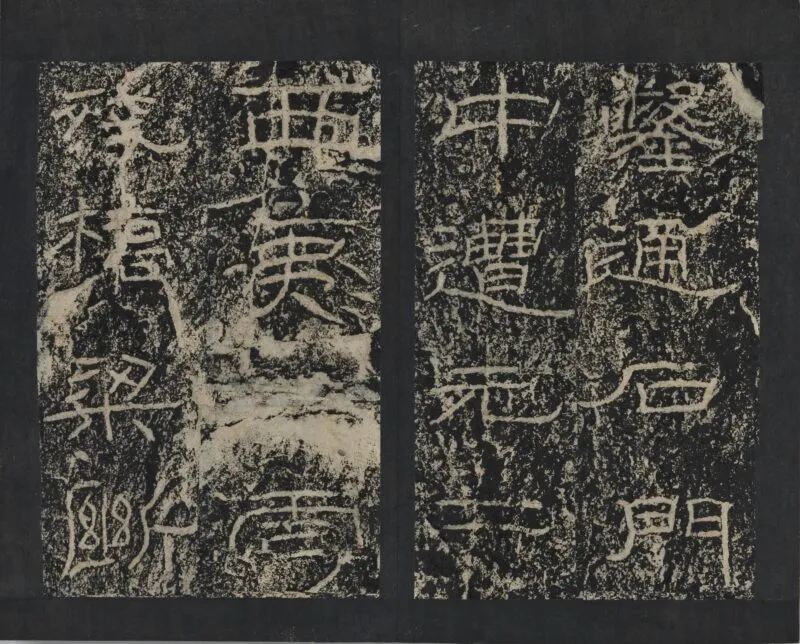 鑿通石門
中遭元二
西夷虐
殘橋梁斷